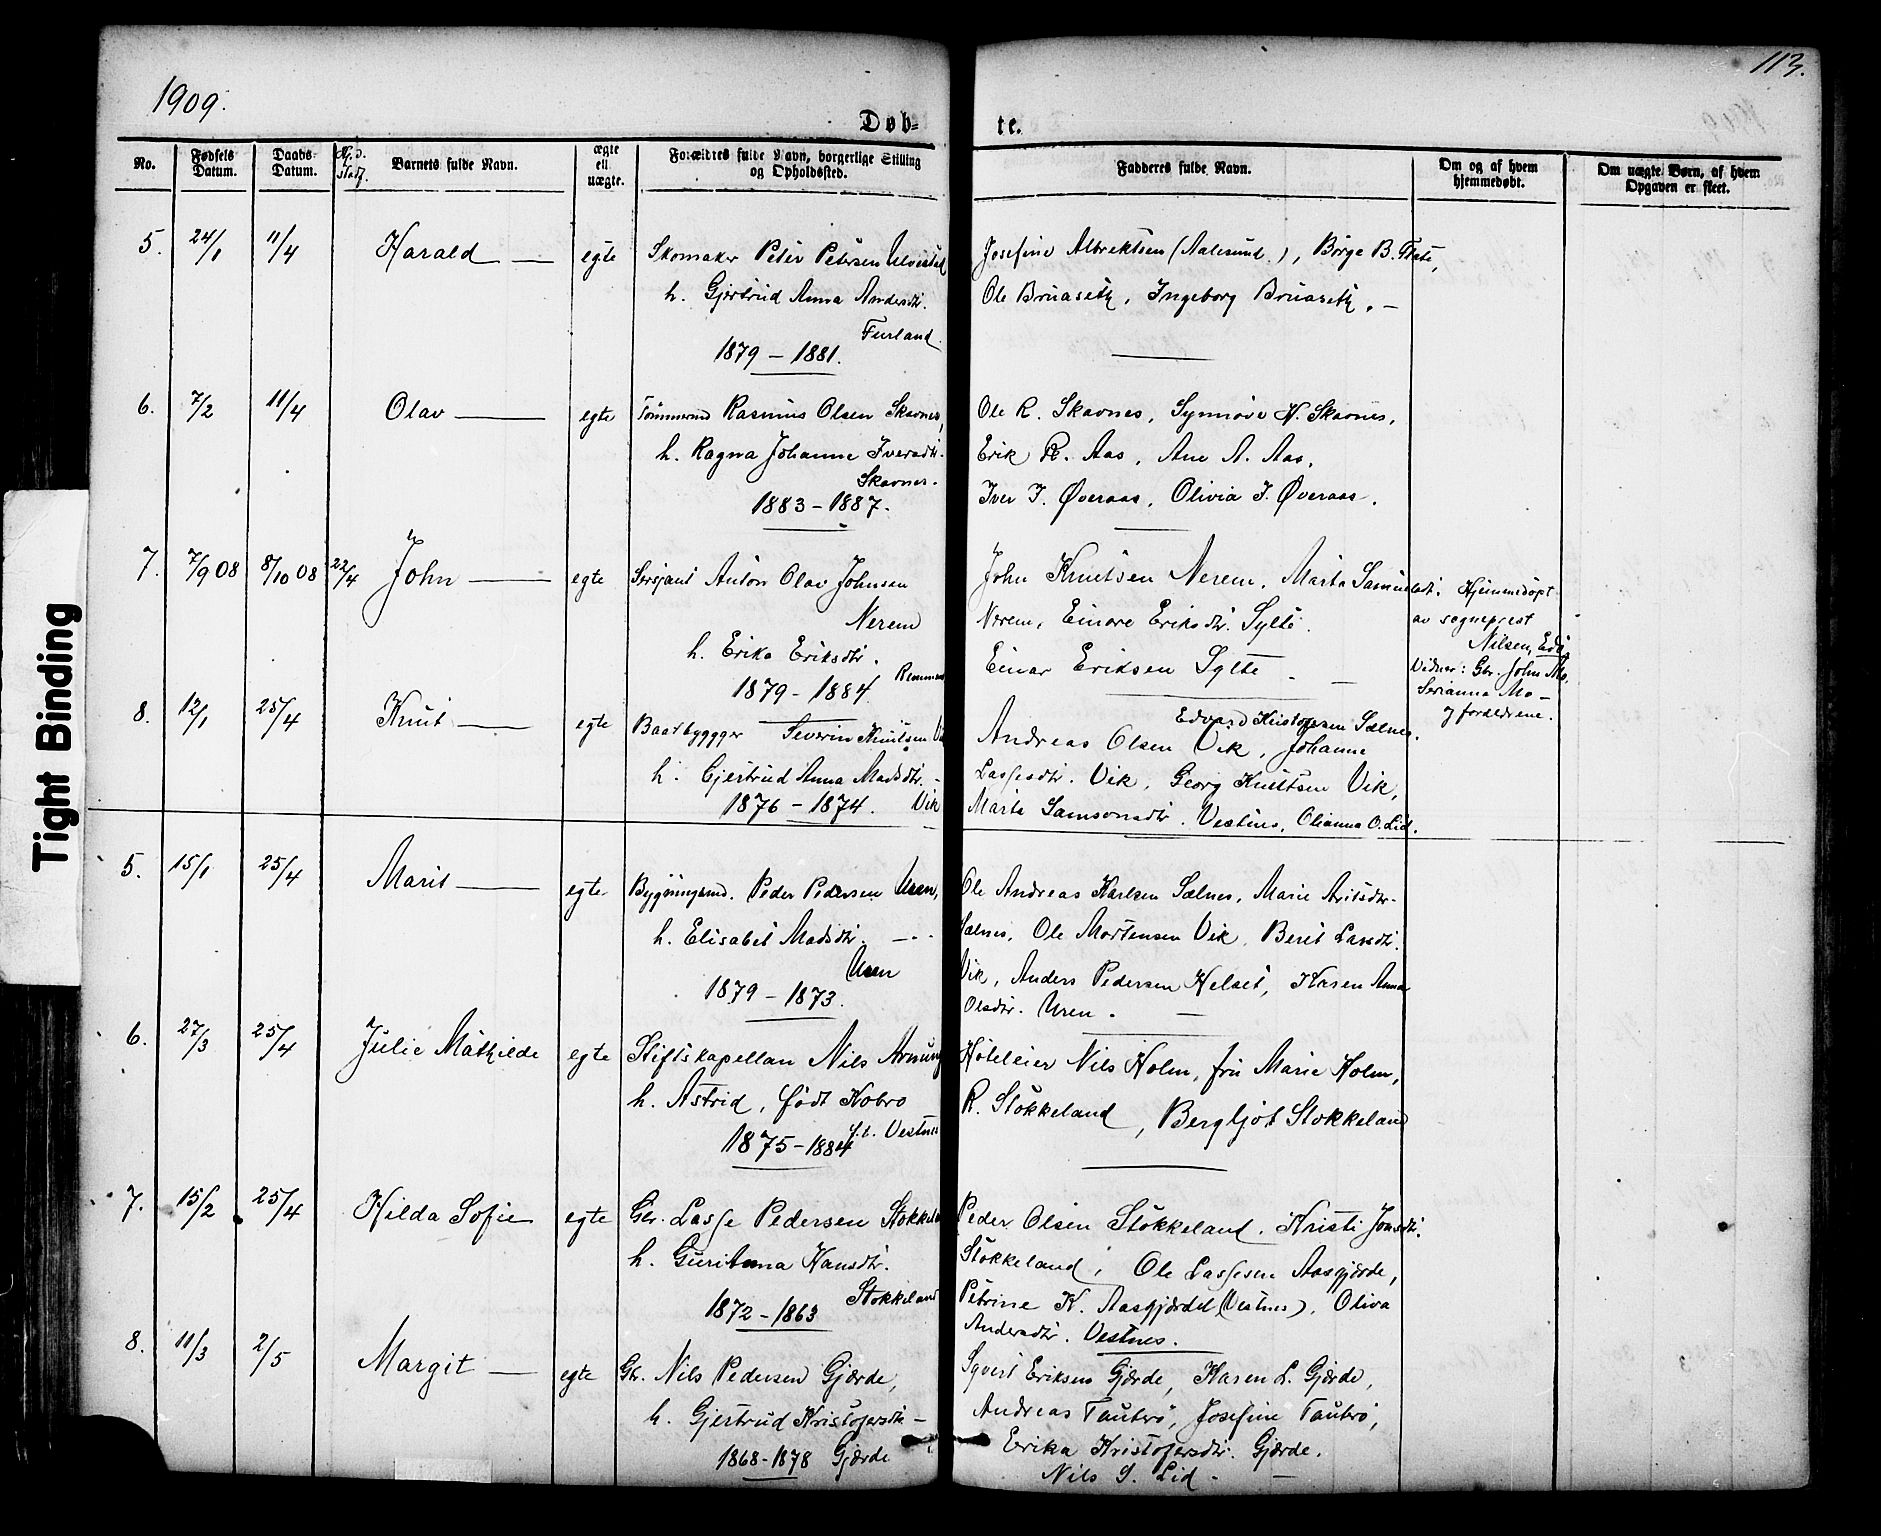 113.
1909.
Døb-
te.
No.
Fødsels Datum.
Daabs- Datum.
Barnets fulde Navn.
ægte ell. uægte.
Forældres fulde Navn, borgerlige Stilling og Opholdssted.
Fadderes fulde Navn.
Om og af hvem hjemmedøbt.
Om uægte Børn, af hvem Opgaven er skeet.
5. 24/1 11/4 Harald — egte
Skomaker Peter Petersen Ulvestad
h. Gjertrud Anna Andersdtr.
Furland.
1879 – 1881.
Josefine Albrektsen (Aalesund.), Børge B.
Ole Bruaseth, Ingeborg Bruaseth. –
6. 7/2 11/4 Olav — egte
Tømmermd Rasmus Olsen Skavnes,
h. Ragna Johanne Iversdtr.
Skavnes.
1883 – 1887.
Ole R. Skavnes, Synnøve H. Skavnes,
Erik R. Aas, Ane A. Aas,
Iver I. Øveraas, Olivia I. Øveraas.
7. 7/9 08 8/10 08 22/4 John — egte
Sersjant Anton Olav Johnsen
Nerem
h. Erika Eriksdtr.
Remmem
1879 – 1884.
John Knutsen Nerem, Marta Samuelsdt.
Nerem, Einare Eriksdtr. Sylte.
Einar Eriksen Sylte – –
Hjemmedøpt
av sogneprest
Nilsen,
Vidner: Gbr. John Mo,
Serianna Mo –
og forældrene.
8. 12/1 25/4 Knut — egte
Baatbyggger Severin Knutsen Vik
h. Gjertrud Anna Madsdtr. –
1876 – 1874. Vik
Edvard Kristofersen Sælnes.
Andreas Olsen Vik, Johanne
Lassesdtr. Vik, Georg Knutsen Vik,
Marte Samsonsdtr. Vestnes, Olianna O. Lid.
5. 15/1 25/4 Marit — egte
Bygningsmd. Peder Pedersen Uren,
h. Elisabet Madsdtr. –
Uren
1879 – 1873.
Ole Andreas Karlsen Sælnes, Marie
Sælnes, Ole Mortensen Vik, Berit Larsdtr.
Vik, Anders Pedersen Helset, Karen Anna
Olsdtr. Uren. –
6. 27/3 25/4 Julie Mathilde egte
Stiftskapellan Nils Arnung
h. Astrid, født Kobro
f.t. Vestnes
1875 – 1884
Hoteleier Nils Holm, fru Marie Holm,
R. Stokkeland, Bergljot Stokkeland
7. 15/2 25/4 Hilda Sofie egte
Gbr. Lasse Pedersen Stokkeland
h. Guri Anna Hansdtr.
Stokkeland
1872 – 1863
Peder Olsen Stokkeland, Kristi Jonsdtr.
Stokkeland, Ole Lassesen Aasgjærde,
Petrine K. Aasgjærdet (Vestnes), Oliva
Andersdtr. Vestnes.
8. 11/3 2/5 Margit — egte
Gbr. Nils Pedersen Gjærde,
h. Gjertrud Kristofersdtr –
1868 – 1878 Gjærde
Syvert Eriksen Gjærde, Karen L. Gjærde,
Andreas Tautrø, Josefine Tautrø,
Erika Kristofersdtr. Gjærde,
Nils S. Lid. –
Tight Binding